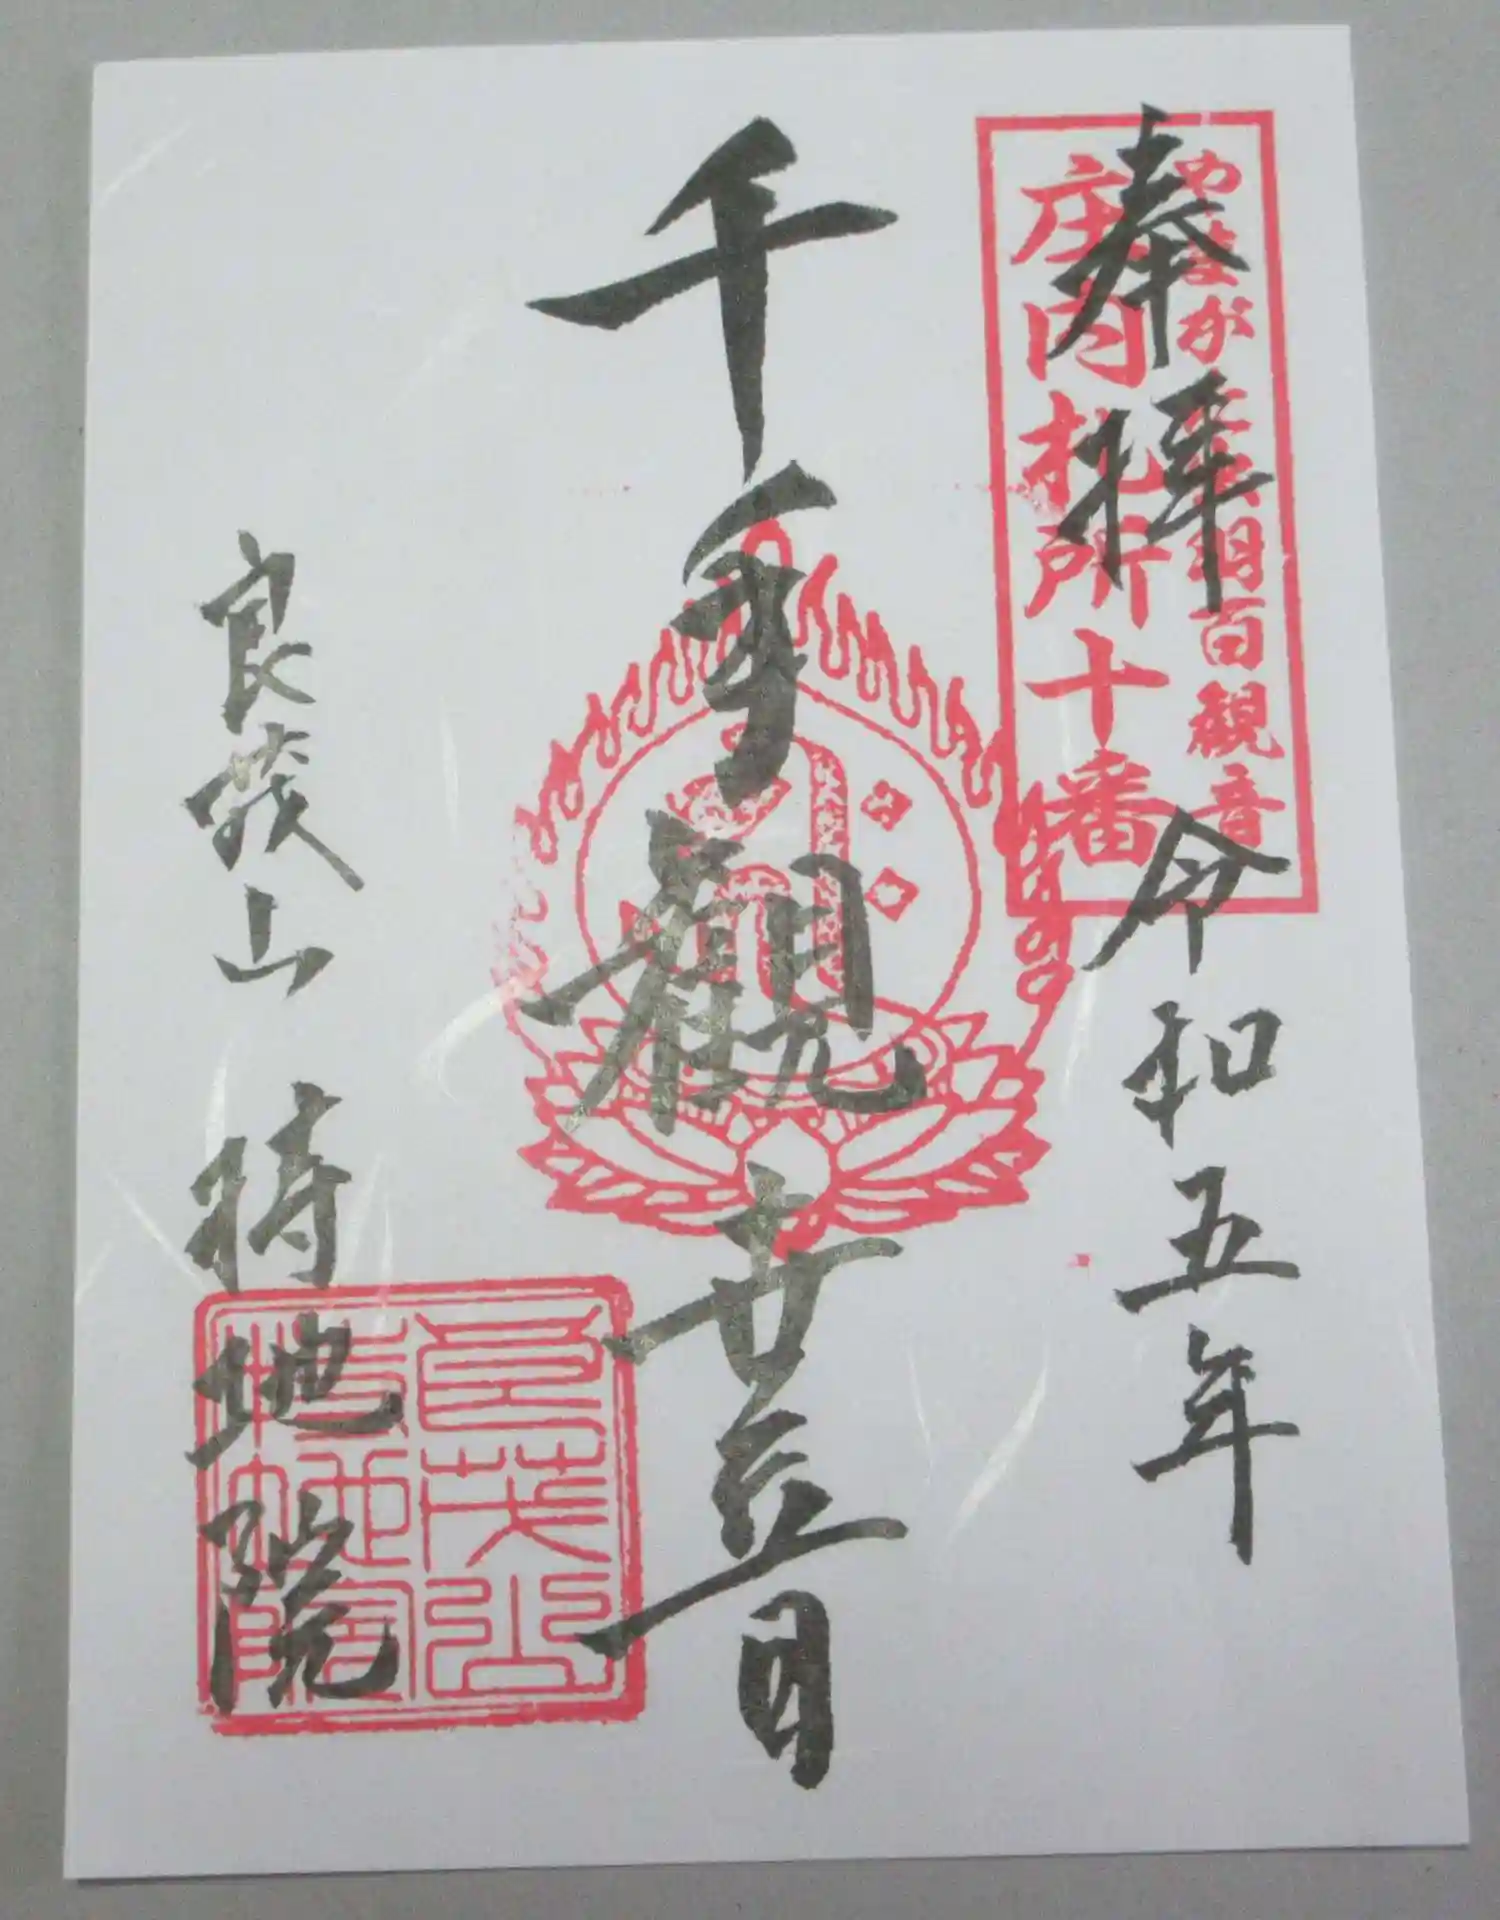 奉拝 令和五年
やまがた出羽百観音
庄内札所十番
千手観世音
良茂山 持地院
良茂山
持地院